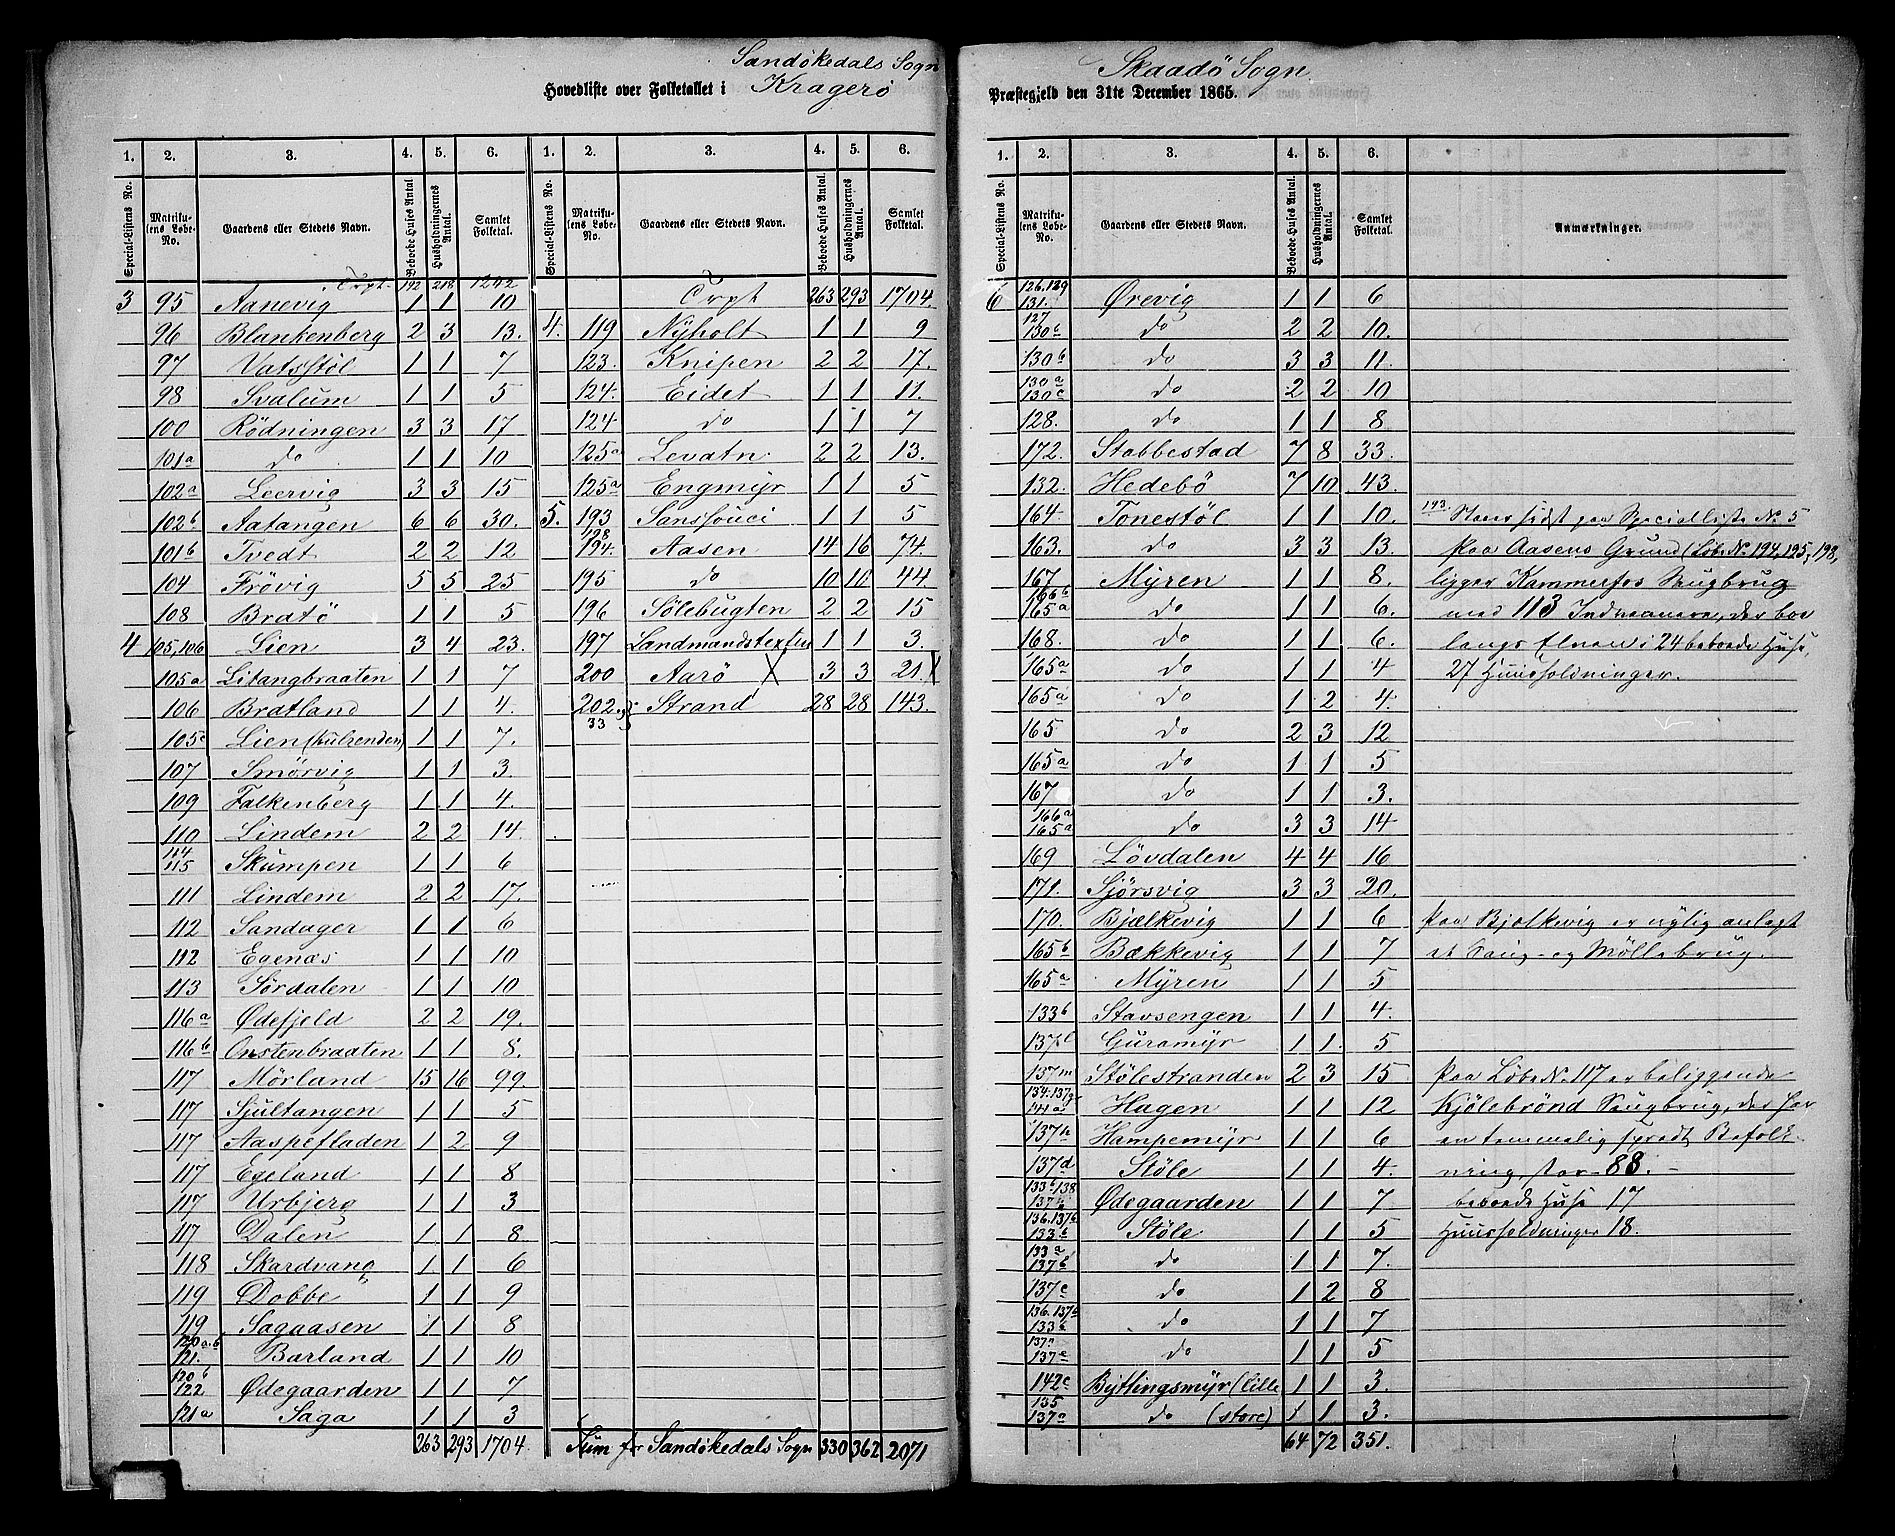 Sandøkedals Sogn
Hovedliste over Folketallet i Kragerø
1. 2. 3. 4. 5. 6. 1. 2. 3. 4. 5. 6.
Special-Listens No. Matrikulens Løbe-No. Gaardens eller Stedets Navn. Beboede Huses Antal. Husholdningernes Antal. Samlet Folketal. Special-Listens No. Matrikulens Løbe-No. Gaardens eller Stedets Navn. Beboede Huses Antal. Husholdningernes Antal. Samlet Folketal.
Trpt 192 218 1242
3 95 Aanevig 1 1 10 Trpt 263 293 1704.
96 Blankenberg 2 3 13. 4. 119 Nyholt 1 1 9
97 Vatsstöl 1 1 7 123. Knipen 2 2 17.
98 Svalum 1 1 5 124. Eidet 1 1 11.
100 Rödningen 3 3 17 124 do 1 1 7
101a do 1 1 10 125a Levatn 2 2 13.
102a Leervig 3 3 15 125a Engmyr 1 1 5
102b Aatangen 6 6 30. 5. 193 Sanssouci 1 1 5
101b Tvedt 2 2 12 198 194. Aasen 14 16 74.
104 Frövig 5 5 25 195 do 10 10 44
108 Bratö 1 1 5 196 Sölebugten 2 2 15
4 105,106 Lien 3 4 23. 197 1 1 3.
105a Litangbraaten 1 1 7 200 Aarö X 3 3 21 X
106 Bratland 1 1 4. 202 33 Strand 28 28 143.
105c Lien 1 1 7.
107 Smörvig 1 1 3.
109 Falkenberg 1 1 4.
110 Lindem 2 2 14.
114 115 Skumpen 1 1 6
111 Lindem 2 2 17.
112 Sandager 1 1 6
112 Egenæs 1 1 10
113 Sördalen 1 1 10
116a Ødefjeld 2 2 19.
116b Onstenbraaten 1 1 8.
117 Mörland 15 16 99.
117 Sjultangen 1 1 5
117 Aaspefladen 1 2 9
117 Egeland 1 1 8
117 Urbjerg 1 1 3
117 Dalen 1 1 8
118 Skardvang 1 1 6
119 Dobbe 1 1 9
119 Sagaasen 1 1 8
120a.b 121. Barland 1 1 10
120b 122 Ødegaarden 1 1 7
121a Saga 1 1 3
263 293 1704. Sum for Sandøkedals Sogn 330 362 2071
Skaadö Sogn
Præstegjeld den 31te December 1865.
1. 2. 3. 4. 5. 6.
Special-Listens No. Matrikulens Løbe-No. Gaardens eller Stedets Navn. Beboede Huses Antal. Husholdningernes Antal. Samlet Folketal. Anmærkninger.
6 126.129 131. Ørevig 1 1 6
127 130b do 2 2 10.
130b do 3 3 11.
130a 130c do 2 2 10
128. do 1 1 8
172. Stabbestad 7 8 33.
132. Hedebö 7 10 43.
164. Tonestöl 1 1 10. 193. Stans sidst paa Specialliste No 5
163. do 3 3 13. paa Aasens Grund (Løbe No 194, 195, 198,
167 Myren 1 1 8. ligger Kammerfos Saugbrug
166b 165a do 1 1 6. med 113 Indvaanere, der boe
168. do 1 1 6. langs Elven i 24 beboede Huse,
165a do 1 1 4 27 Huusholdninger.
165a do 1 2 4.
165 do 2 3 12
165a do 1 1 5
167 do 1 1 3.
166a 165a do 3 3 14
169 Lövdalen 4 4 16
171. Sjörsvig 3 3 20.
170. Bjælkevig 1 1 6 Paa Bjælkevig er nylig anlagt
165b Bækkevig 1 1 7 et Saug- og Møllebrug.
165a Myren 1 1 5
133b Stavsengen 1 1 4.
137l Guramyr 1 1 5
137m Stölestranden 2 3 15 Paa Løbe No. 117 er beliggende
134.137g 141a Hagen 1 1 12 Kjölebrönd Saugbrug, der har
137n Hampemyr 1 1 6 en temmelig spredt Befolk-
137d Stöle 1 1 4. ning, stor 88.
133b 138 Ødegaarden 1 1 7 beboede Huse 17
136.137b 133b Stöle 1 1 5 Huusholdninger 18.
133a 137b do 1 1 7.
137c do 1 2 8
136.137b 133b do 1 1 7
137e do 1 1 5
142c Byttingsmyr (lille 1 1 3.
135 137a do (store) 1 1 3.
64 72 351.